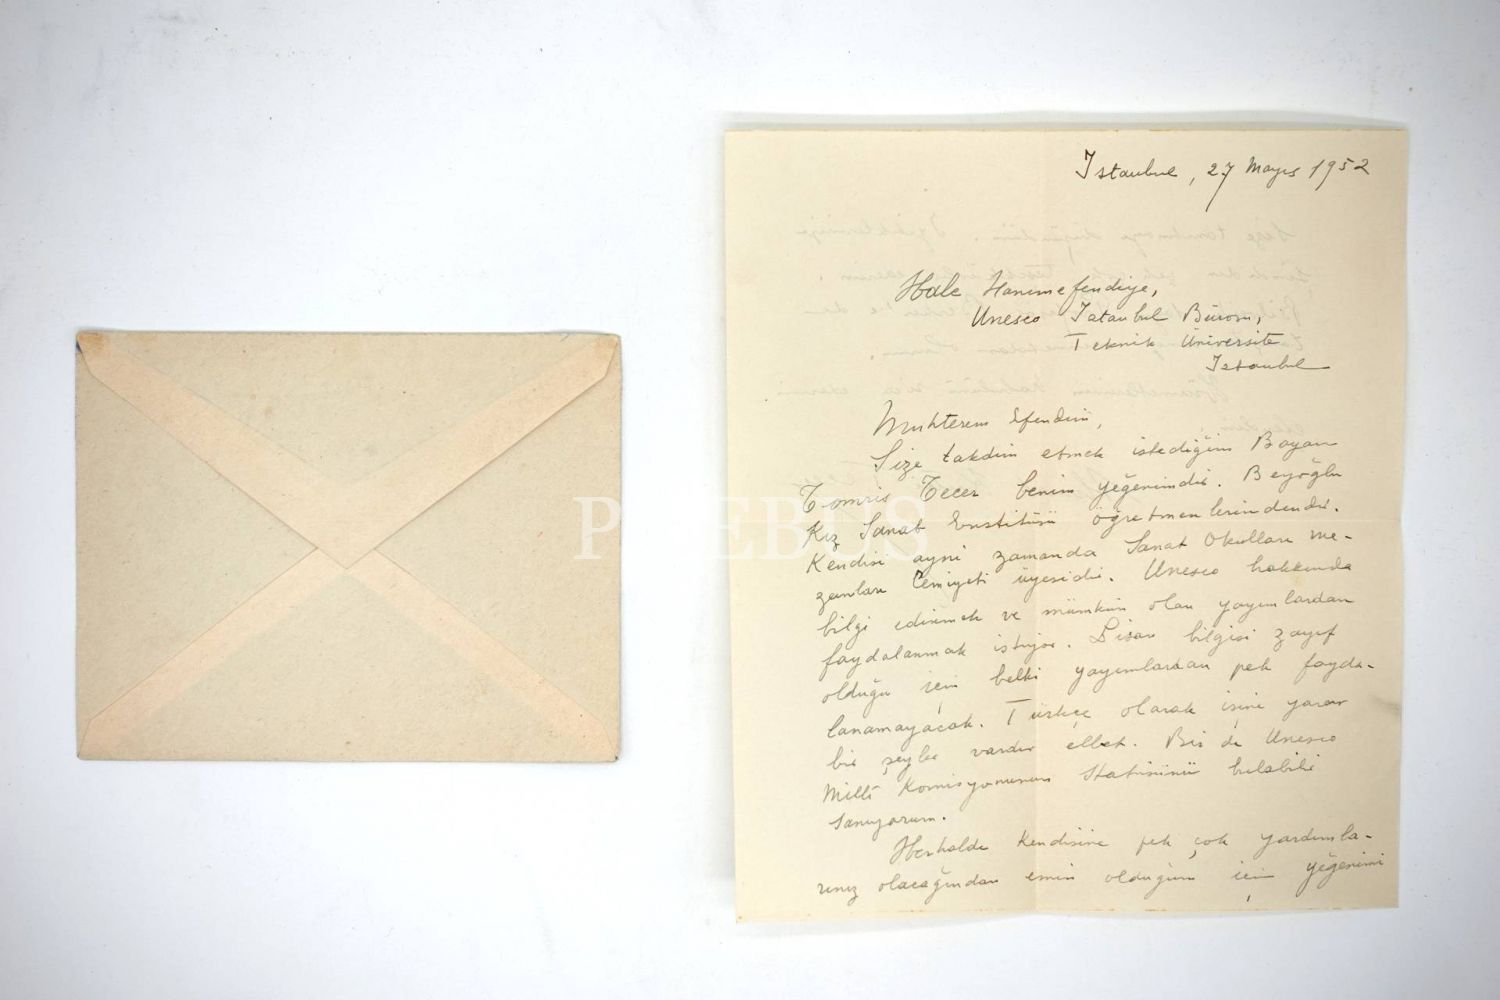 İstanbul, 27 Mayıs 1952
Hale Hanımefendiye,
Unesco İstanbul Bürosu,
Teknik Üniversite
İstanbul
Muhterem Efendim,
Size takdim etmek istediğim Bayan
Tomris Tecer benim yeğenimdir. Beyoğlu
Kız Sanat Enstitüsü öğretmenlerindendir.
Kendisi ayni zamanda Sanat Okulları me-
zunları Cemiyeti üyesidir. Unesco hakkında
bilgi edinmek ve mümkün olan yayımlardan
faydalanmak istiyor. Lisan bilgisi zayıf
olduğu için belki yayımlardan pek fayda-
lanamayacak. Türkçe olarak işine yarar
bir şeyler vardır elbet. Bir de Unesco
Millî Komisyonunun Statüsünü bulabilir
sanıyorum.
Herhalde kendisine pek çok yardımla-
rınız olacağından emin olduğum için yeğenimi
PHEBUS